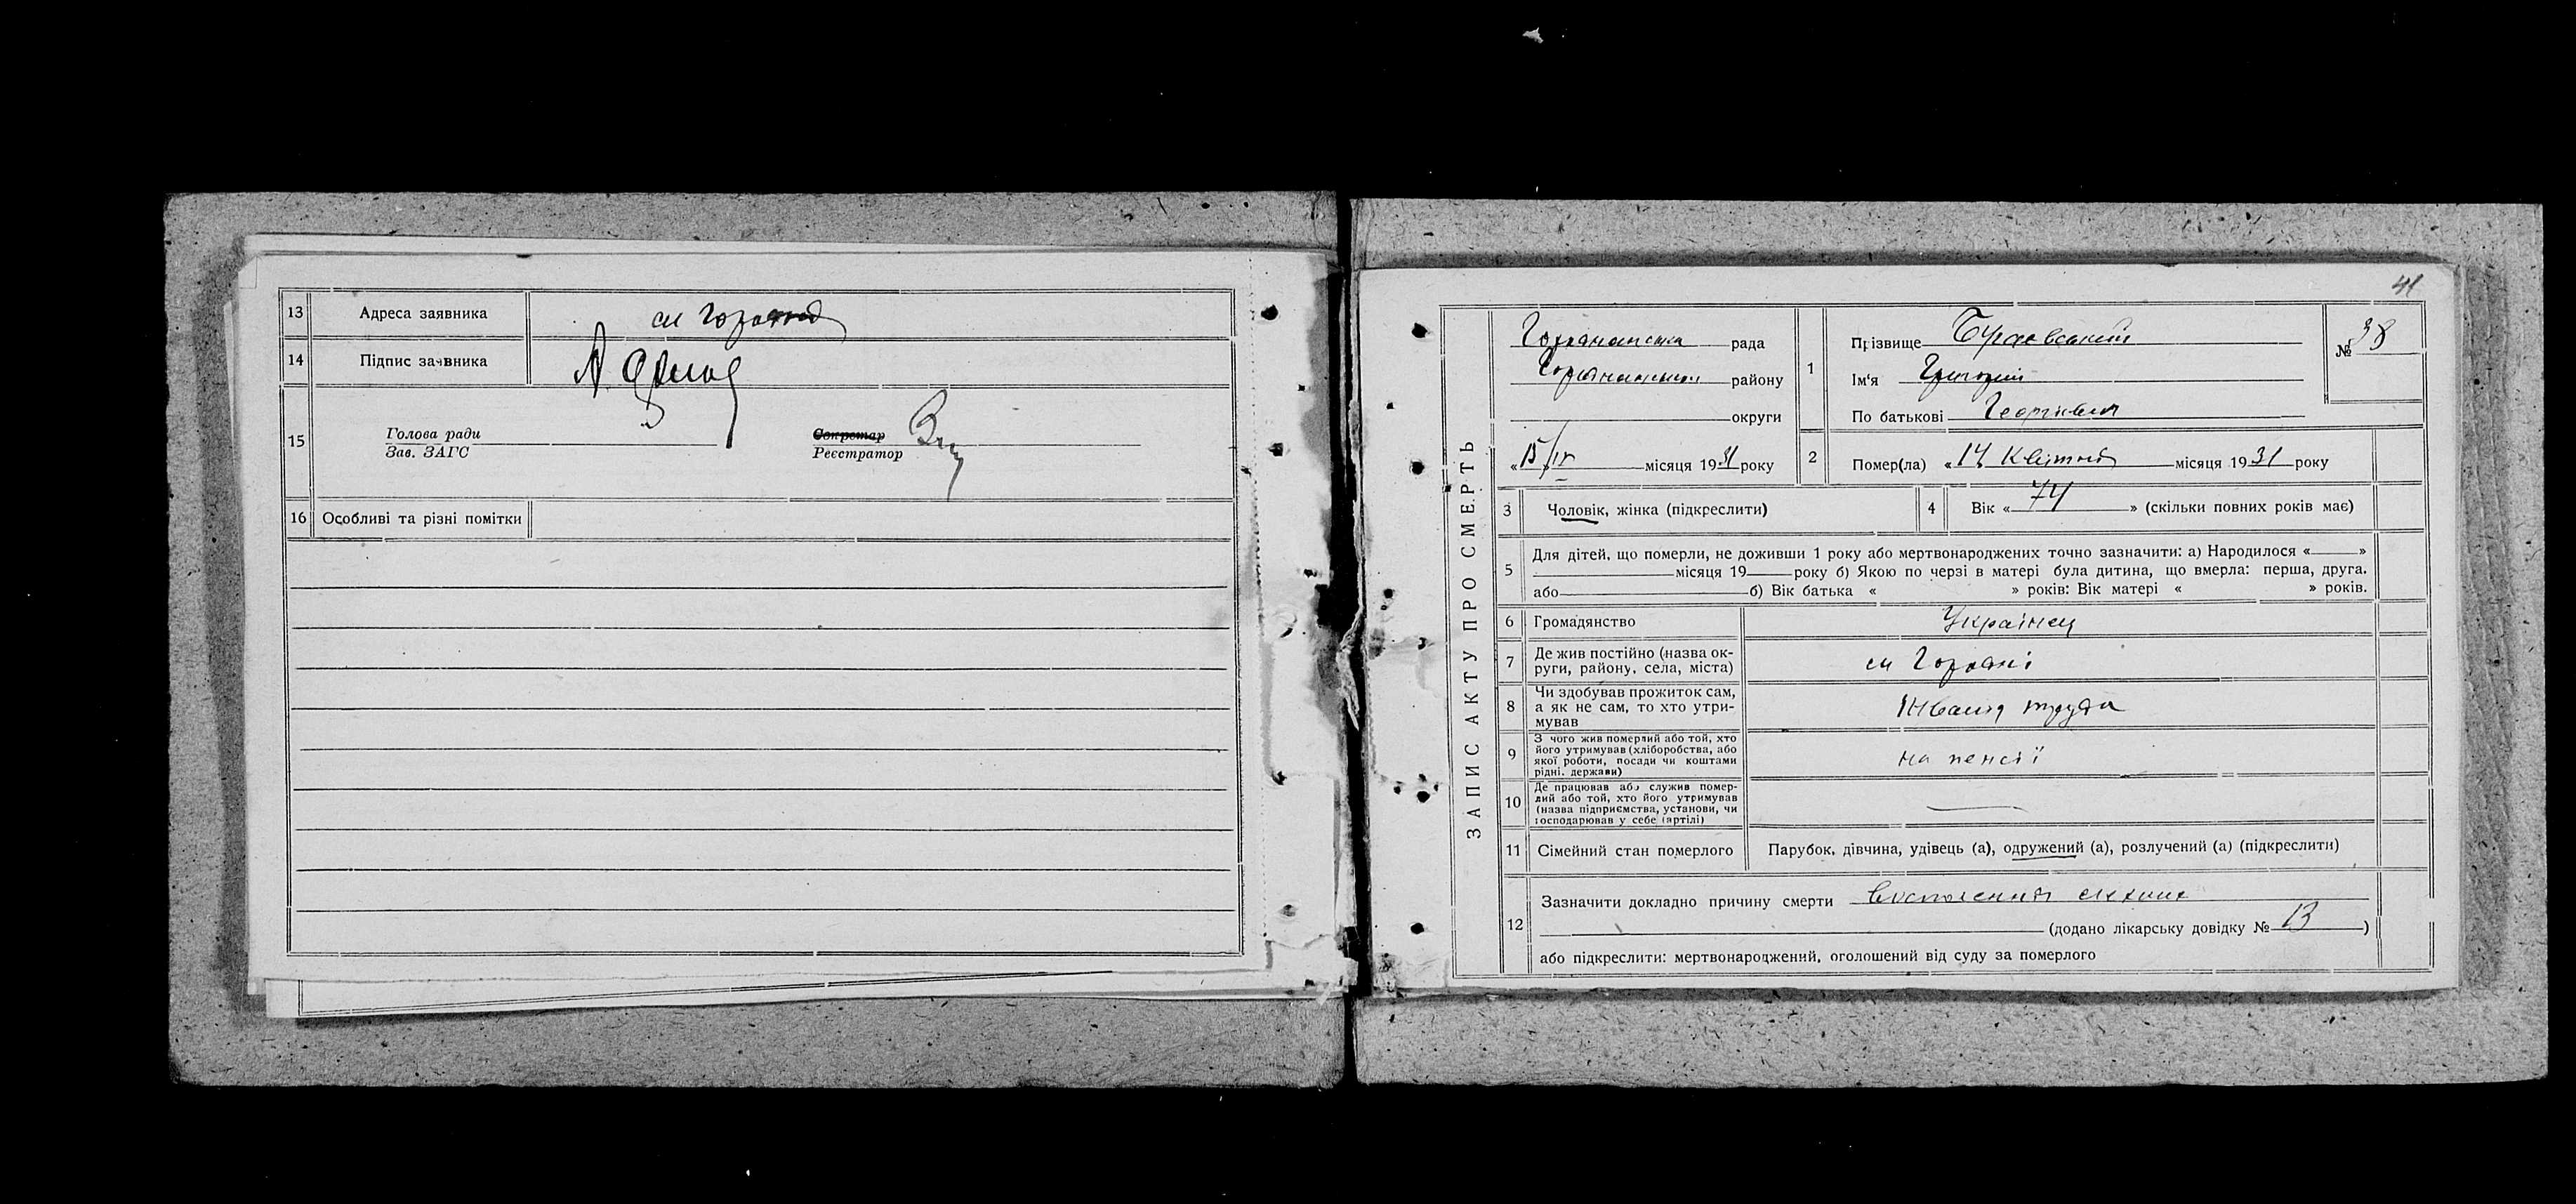 13 Адреса заявника см
14 Підпис заявника
15 Голова ради Секретар
Зав. ЗАГС Реєстратор
16 Особливі та різні помітки
41
ЗАПИС АКТУ ПРО СМЕРТЬ
рада
району
округи
«15/IV місяця 1931 року
1 Прізвище
Ім'я Григорій
По батькові Георгієвич
№ 38
2 Помер(ла) «14 Квітня місяця 1931 року
3 Чоловік, жінка (підкреслити)
4 Вік «74» (скільки повних років має)
5 Для дітей, що померли, не доживши 1 року або мертвонароджених точно зазначити: а) Народилося « »
місяця 19 року б) Якою по черзі в матері була дитина, що вмерла: перша, друга.
або б) Вік батька « » років: Вік матері « » років.
6 Громадянство Українец
7 Де жив постійно (назва ок-
руги, району, села, міста) см
8 Чи здобував прожиток сам,
а як не сам, то хто утри-
мував Інвалід труда
9 З чого жив померлий або той, хто
його утримував (хліборобства, або
якої роботи, посади чи коштами
рідні, держави) на пенсії
10 Де працював або служив помер-
лий або той, хто його утримував
(назва підприємства, установи, чи
господарював у себе (артілі)
11 Сімейний стан померлого Парубок, дівчина, удівець (а), одружений (а), розлучений (а) (підкреслити)
12 Зазначити докладно причину смерти
(додано лікарську довідку № 13)
або підкреслити: мертвонароджений, оголошений від суду за померлого